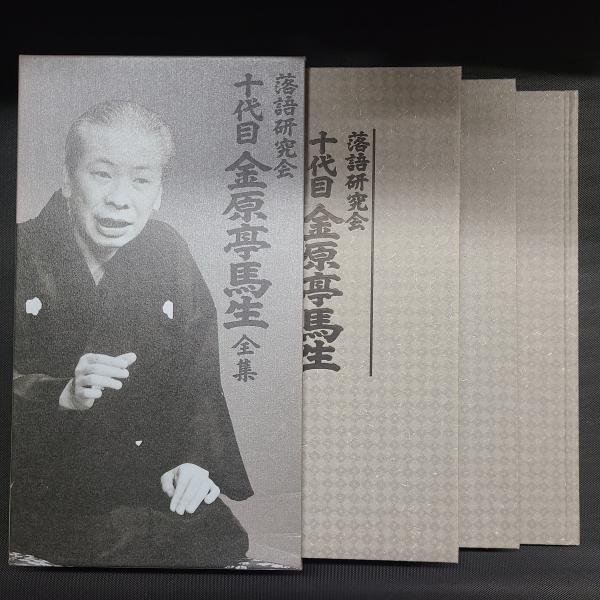 落語研究会
十代目 金原亭馬生 全集
落語研究会
十代目 金原亭馬生